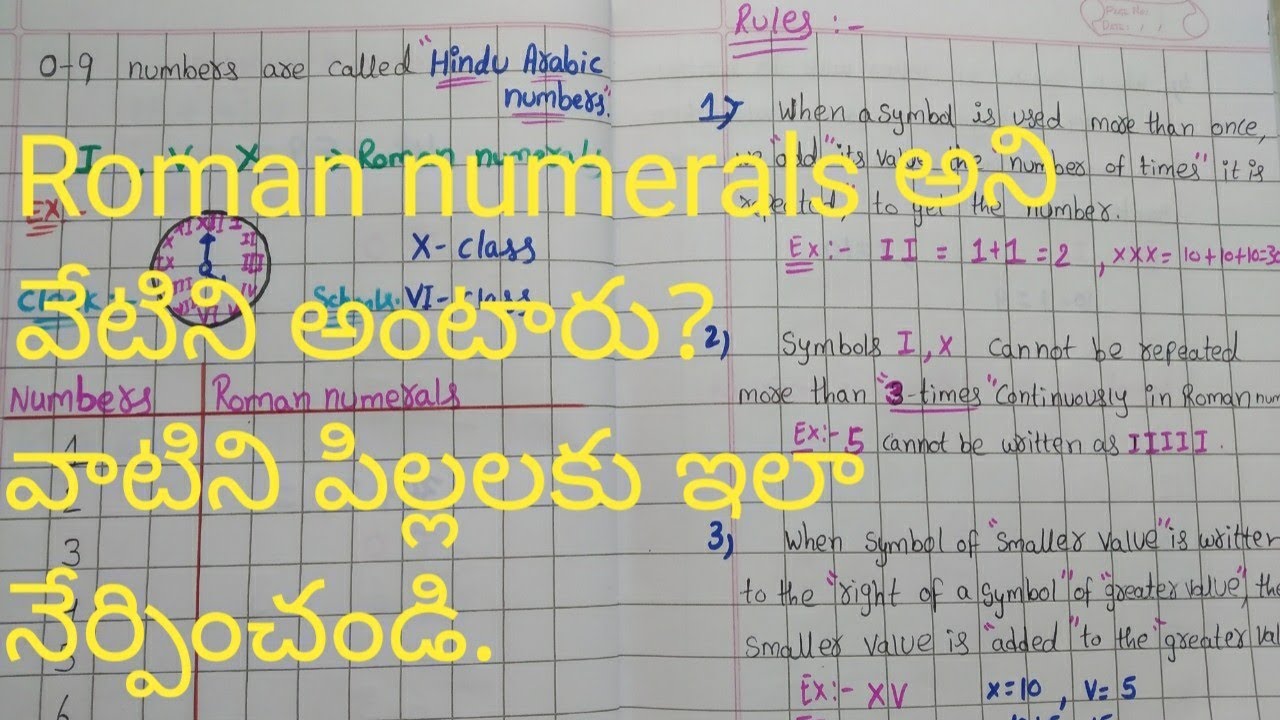 0-9 numbers are called "Hindu Arabic
numbers".
I, V, X → Roman numerals
Ex:-
Clock:-
X- class
Schools. VI- class
Numbers Roman numerals
1
2
3
4
5
6
Roman numerals అని
వేటిని అంటారు?
వాటిని పిల్లలకు ఇలా
నేర్పించండి.
Page No:
Date: / /
Rules :-
1) When a symbol is used more than once,
"add" its value number of times" it is
repeated, to get the number.
Ex:- II = 1+1 =2 , XXX= 10+10+10=30
2) Symbols I, X cannot be repeated
more than "3-times" continuously in Roman num
Ex:- 5 cannot be written as IIIII.
3) When symbol of "smaller value" is written
to the "right of a symbol" of "greater value", the
smaller value is "added" to the "greater val
Ex:- XV X=10 , V= 5